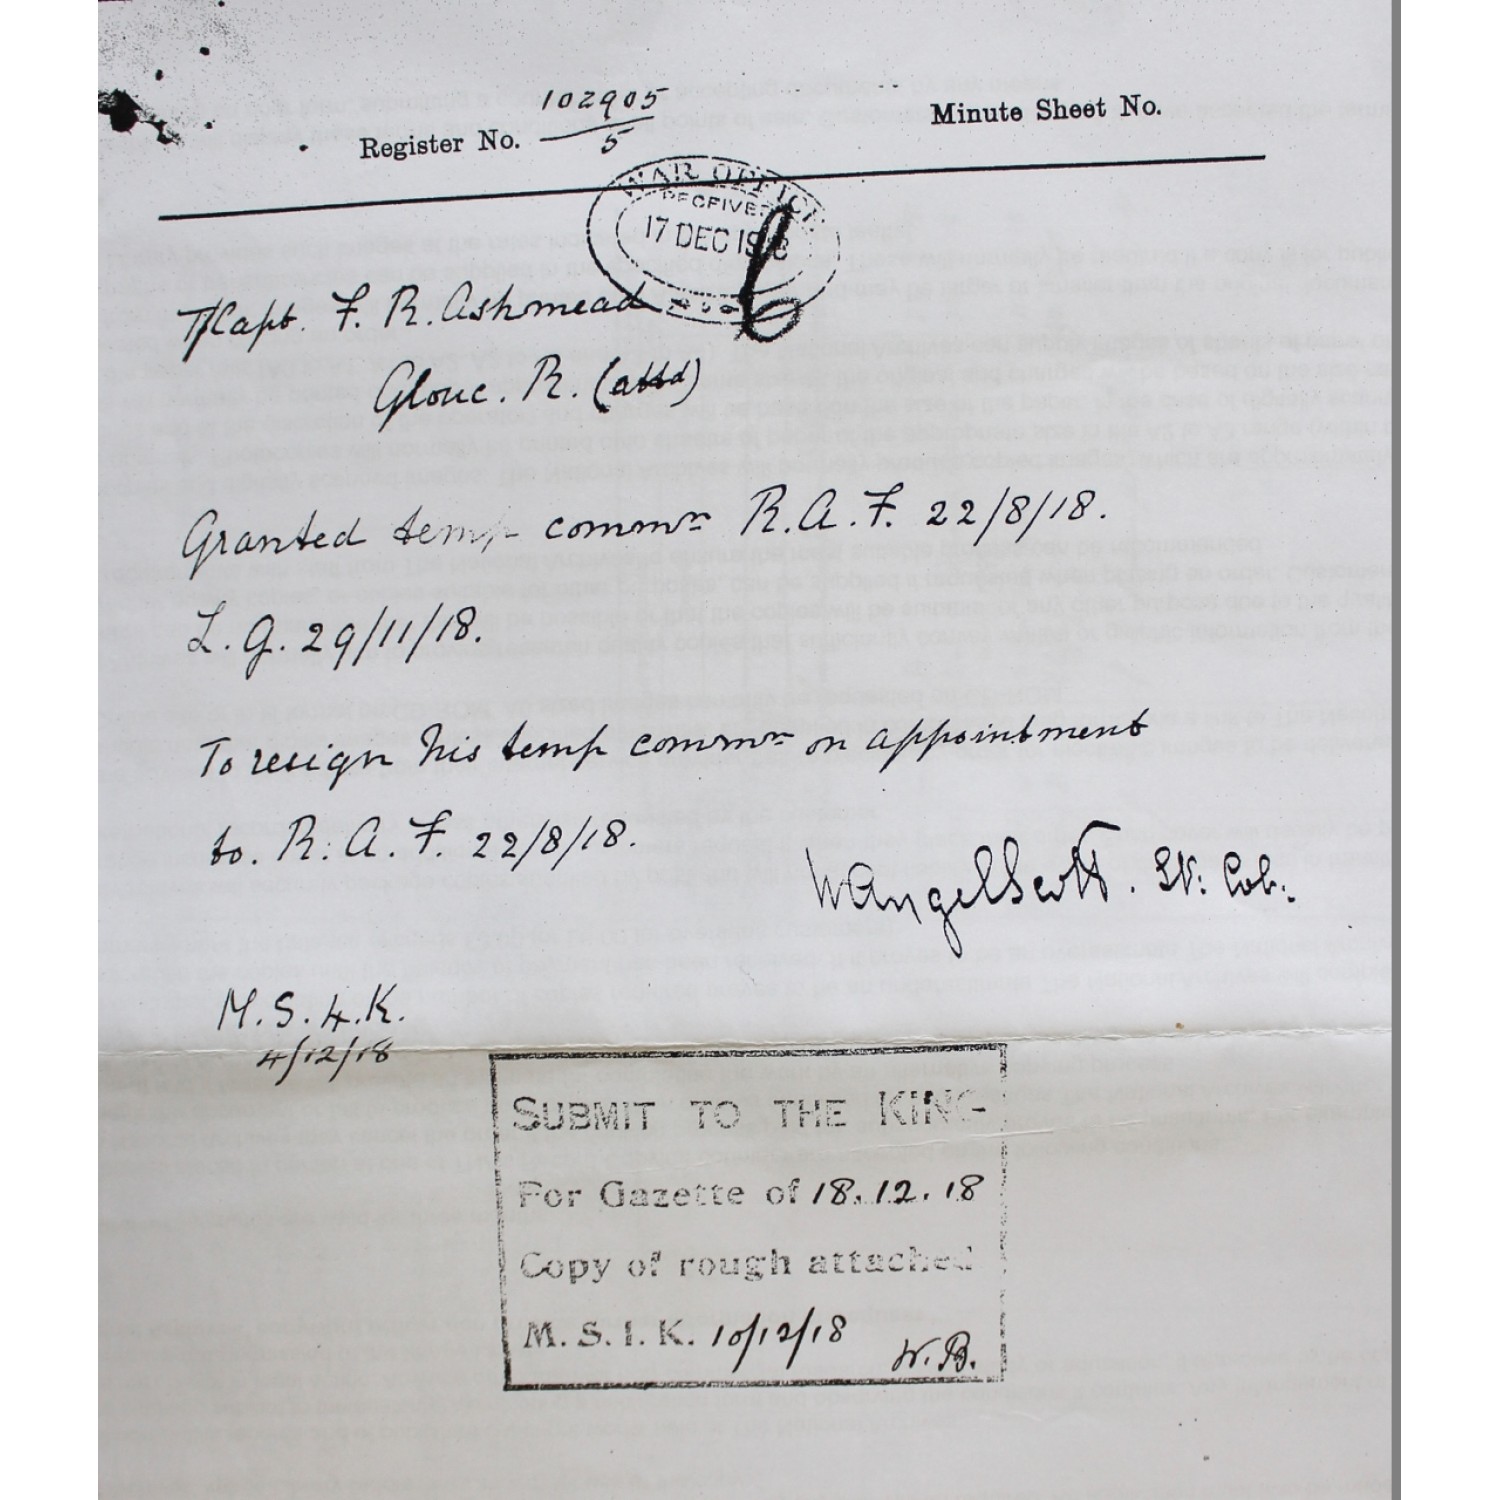 102905
5
Register No.
Minute Sheet No.
WAR OFFICE
RECEIVED
17 DEC 1918
T/Capt. F. R. Ashmead
Glouc. R. (attd)
Granted temp commn R.A.F. 22/8/18.
L.G. 29/11/18.
To resign his temp commn on appointment
to. R.A.F. 22/8/18.
WAngelScott. Lt: Col:.
M.S.4.K.
4/12/18
SUBMIT TO THE KING
For Gazette of 18.12.18
Copy of rough attached
M.S.1.K. 10/12/18
W.B.